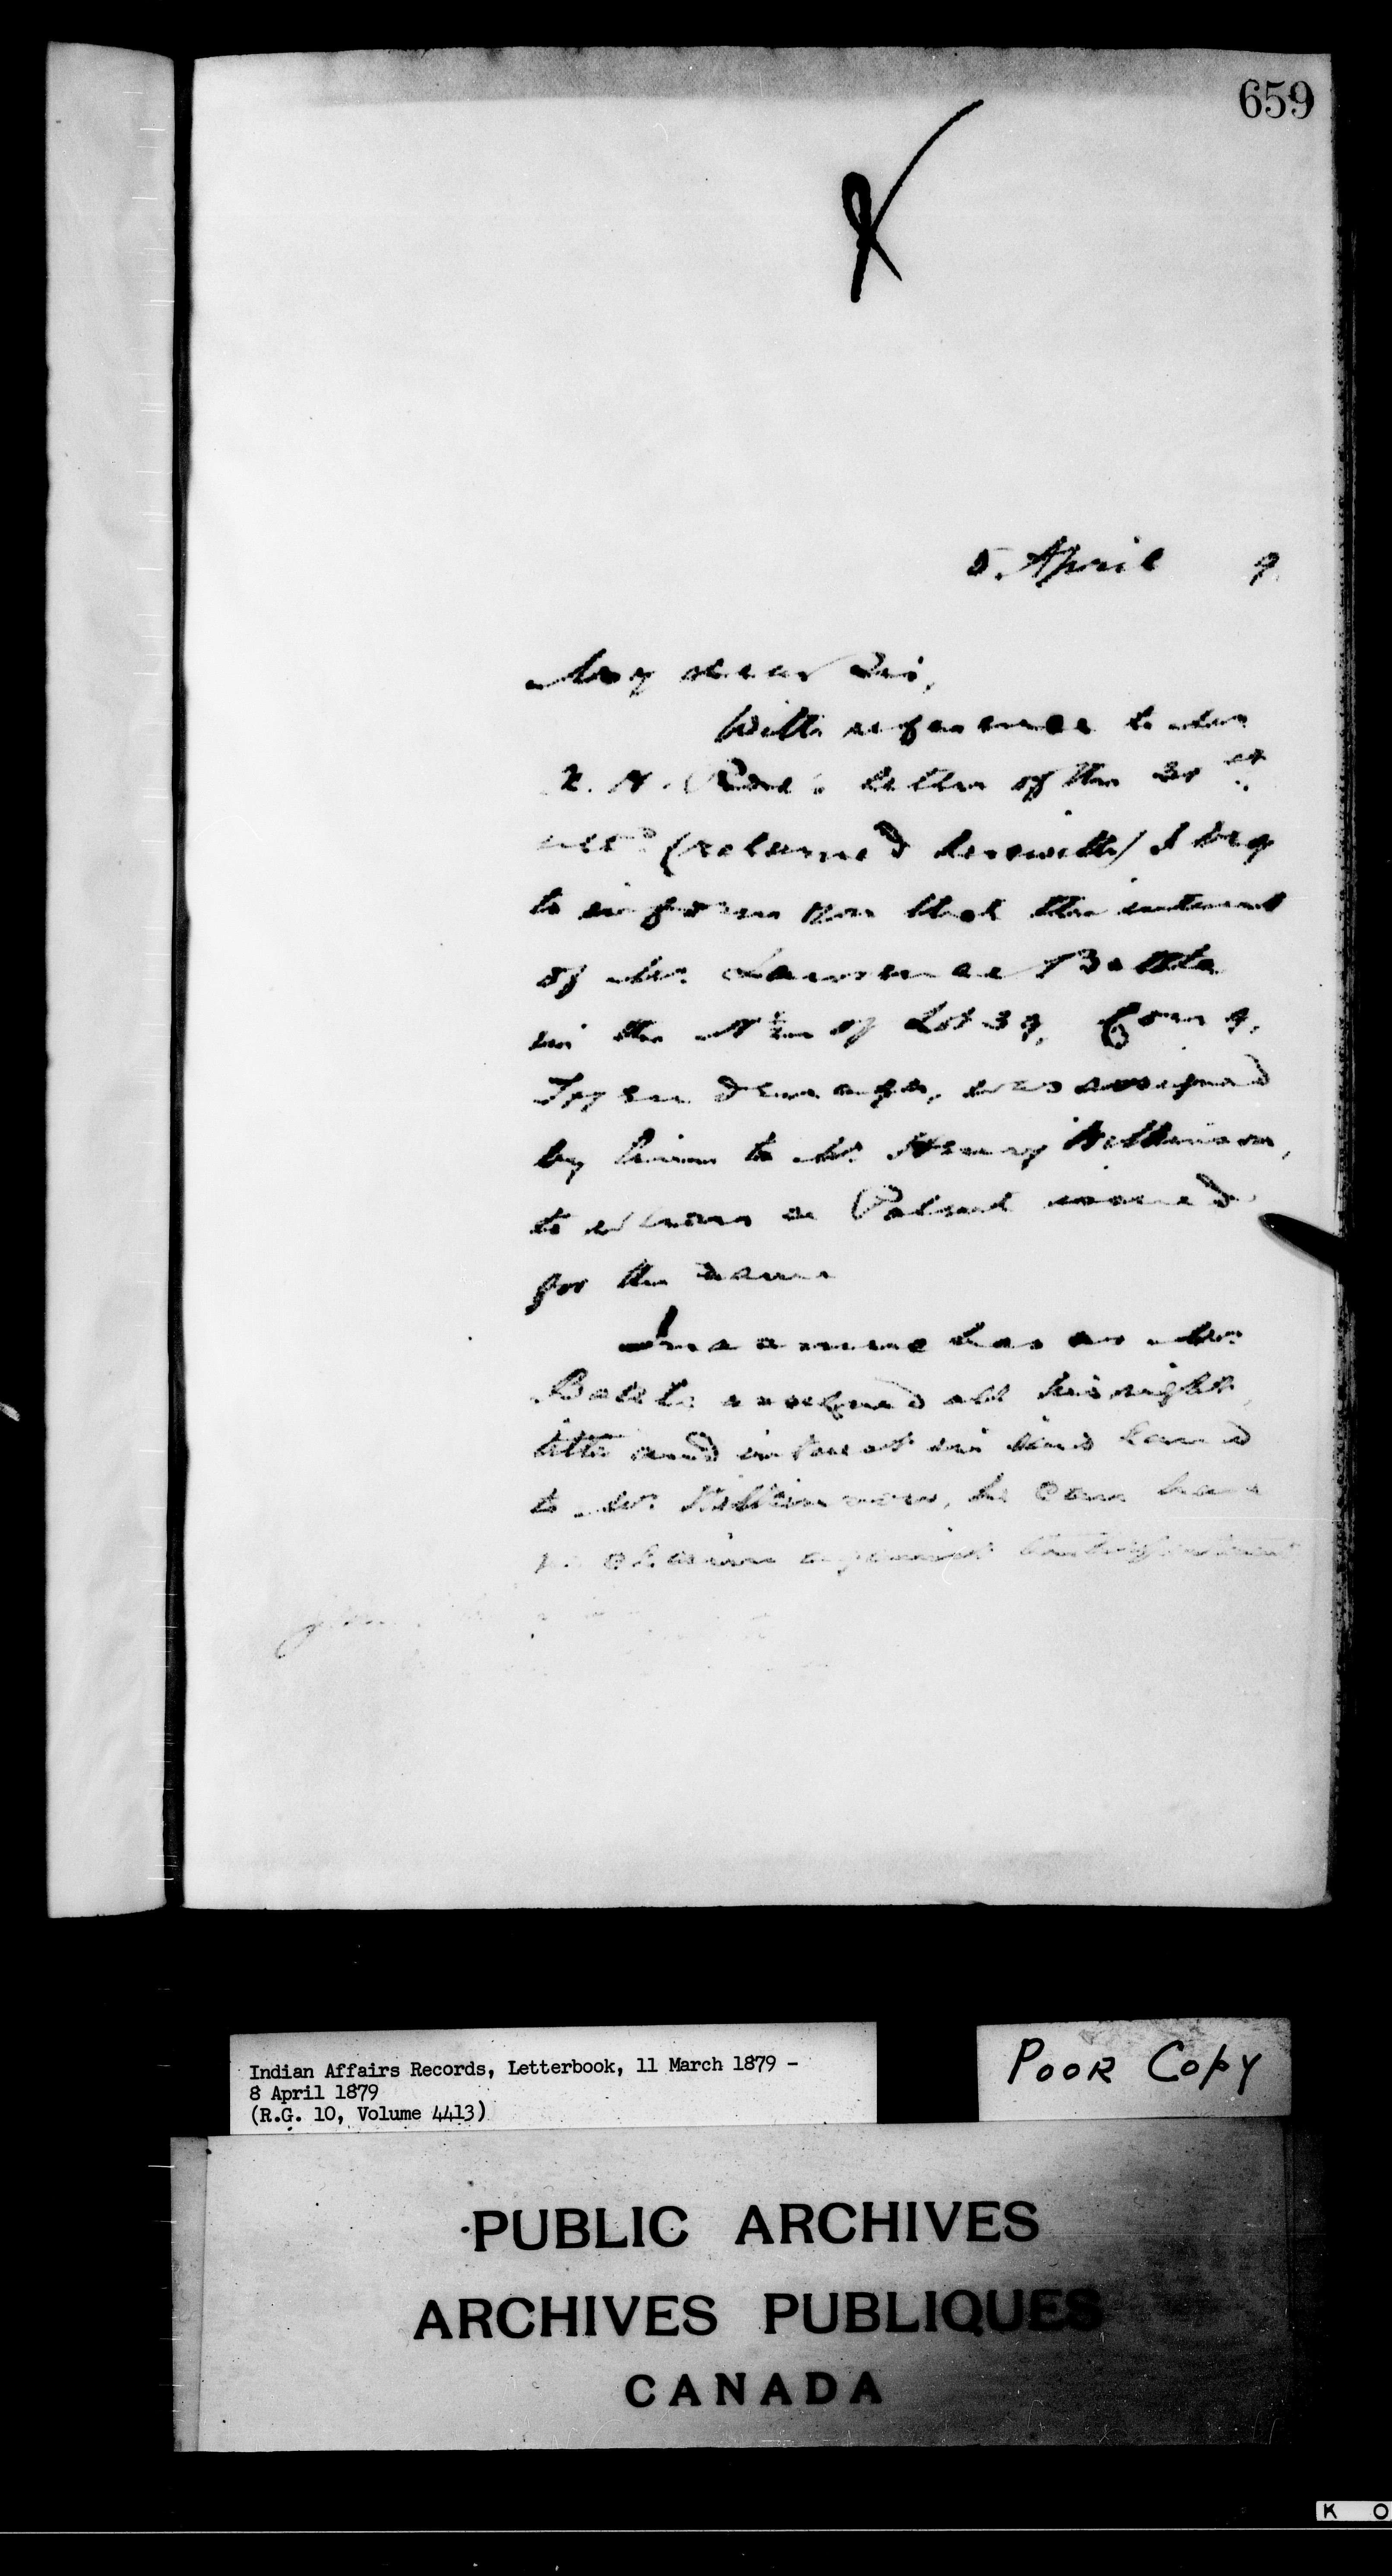 659
5. April 9.
My dear Sir,
With reference to Mr.
letter of the 31st
ulto (returned herewith) I beg
to inform you that the interest
of Mr. Lawrence Battle
in the N ½ of Lot 39, Con 9,
Tyendenaga, was assigned
by him to Mr. Henry Wilkinson,
to whom a Patent issued
for the same
Inasmuch as Mr.
Battle assigned all his right
title and interest in said land
to Mr. Wilkinson, he can have
no claim against
Indian Affairs Records, Letterbook, 11 March 1879 -
8 April 1879
(R.G. 10, Volume 4413)
POOR COPY
PUBLIC ARCHIVES
ARCHIVES PUBLIQUES
CANADA
K O